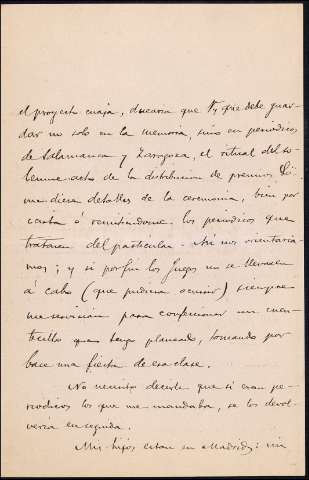 el proyecto cuaja, quisiera que V., que debe guar-
dar no solo en la memoria, sino en periodicos
de Salamanca y Zaragoza, el ritual del so-
lemne acto de la distribucion de premios,
me diera detalles de la ceremonia, bien por
carta ó remitiendome los periodicos que
trataran del particular. Asi nos orientaria-
mos; y si por fin los Juegos no se llevasen
á cabo (que pudiera ocurrir) siempre
me servirian para confeccionar un cuen-
tecillo que tengo planeado, tomando por
base una fiesta de esa clase.
No necesito decirle que si eran pe-
riodicos los que me mandaba, se los devol-
veria enseguida.
Mis hijos estan en Madrid: un